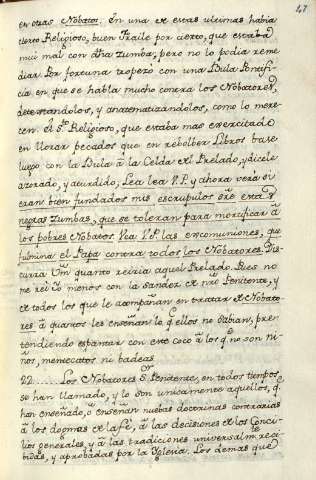 47
en otras Nobatos. En una de estas ultimas habia
cierto Religioso, buen Fraile por cierto, que estaba
mui mal con dha zumba, pero no lo podia reme
diar. Por fortuna tropezó con una Bula Pontifi-
cia en que se habla mucho contra los Nobatores,
detestandolos, y anatematizandolos, como lo mere-
cen. El Sr Religioso, que estaba mas exercitado
en llorar pecados que en rebolber Libros base
luego con la Bula á la Celda del Prelado, y dicele
azorado, y aturdido; Lea lea V. P. y ahora verá si
eran bien fundados mis escrupulos sre esta
negras zumbas, que se toleran para mortificar á
los pobres Nobatos. Vea V. P. las excomuniones, que
fulmina el Papa contra todos los Nobatores. Dis-
curra Vm quanto reiria aquel Prelado. Pues no
me rei á menos con la sandez de nro Penitente, y
de todos los que le acompañan en tratar de Nobato-
res á quantos les enseñan lo q ellos no sabian, pre-
tendiendo espantar con este coco á los q no son ni-
ños, mentecatos ni badeas.
22. Los Nobatores Sor Penitente, en todos tiempos
se han llamado, y lo son unicamente aquellos, q
han enseñado, o enseñan nuebas doctrinas contrarias
á los dogmas de la fé, á las decisiones de los Conci-
lios generales, y á las tradiciones universalm. reci-
bidas, y aprobadas por la Iglesia. Los demas que